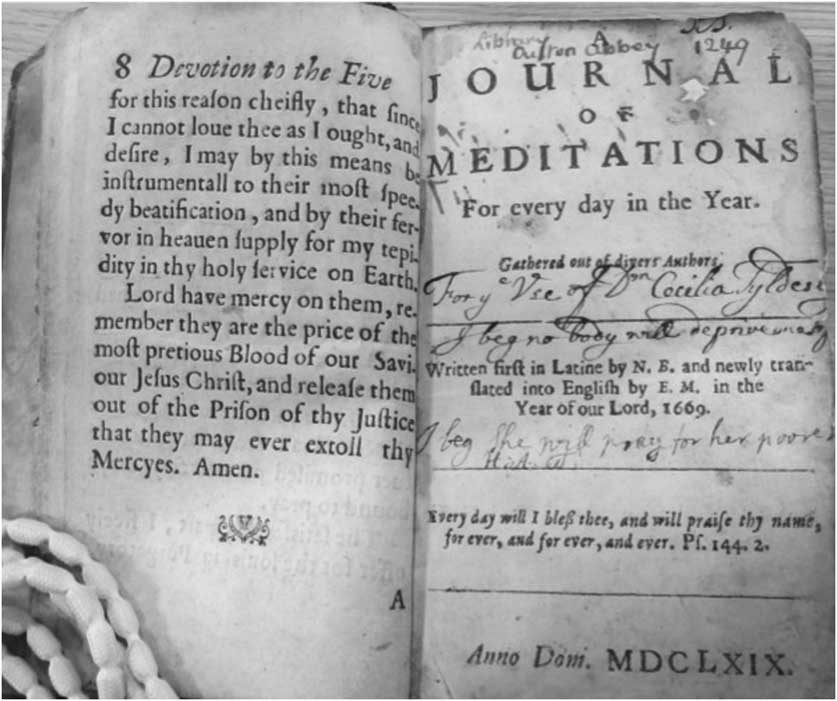 8 Devotion to the Five
for this reaſon cheifly, that ſince
I cannot loue thee as I ought, and
deſire, I may by this means be
inſtrumentall to their moſt ſpee-
dy beatification, and by their fer-
vor in heauen ſupply for my tepi-
dity in thy holy ſervice on Earth.
Lord have mercy on them, re-
member they are the price of the
moſt pretious Blood of our Savi-
our Jeſus Chriſt, and releaſe them
out of the Priſon of thy Juſtice
that they may ever extoll thy
Mercyes. Amen.
A
Library
Oulton Abbey
1249
A
JOURNAL
OF
MEDITATIONS
For every day in the Year.
Gathered out of divers Authors,
For ye Vse of Dm Cecilia Tyldesly
I beg no body will deprive
Written firſt in Latine by N. B. and newly tran-
ſlated into Engliſh by E. M. in the
Year of our Lord, 1669.
I beg she will pray for her poore
Every day will I bleß thee, and will praiſe thy name,
for ever, and for ever, and ever. Pſ. 144. 2.
Anno Dom. MDCLXIX.